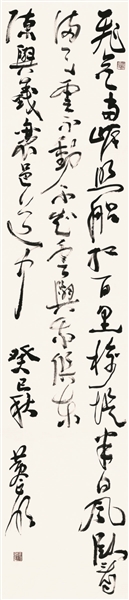 飛花兩岸照船紅百里榆堤半日風臥看
滿天雲不動不知雲與我俱東
陳與義襄邑道中 癸巳秋